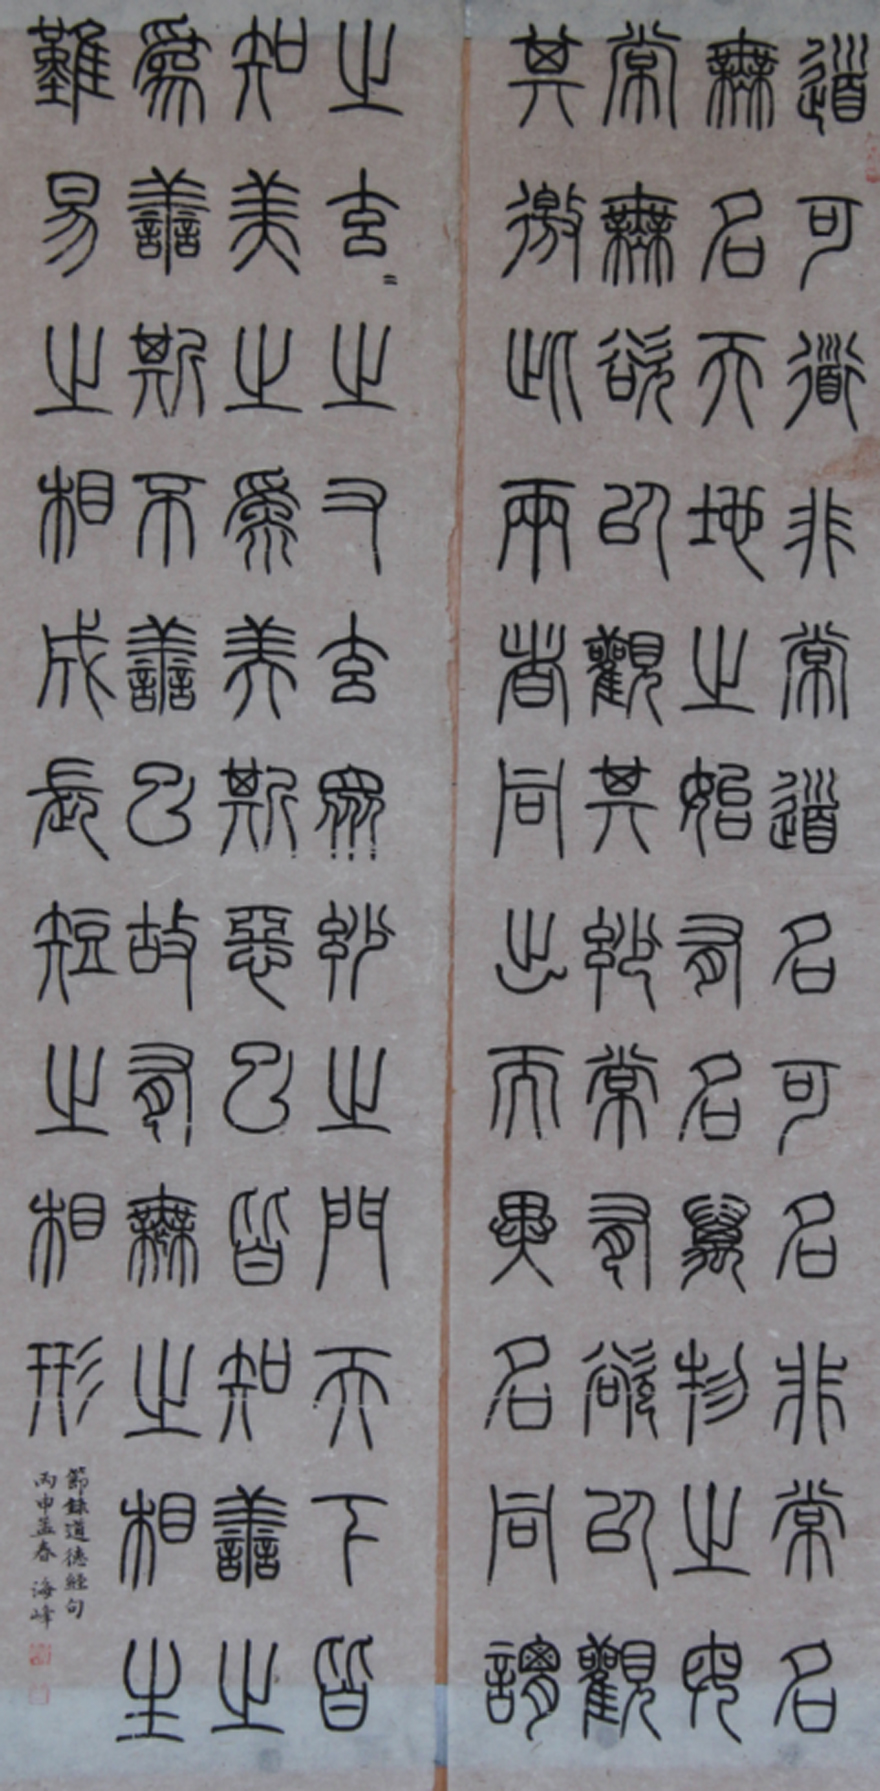 道可道非常道名可名非常名
無名天地之始有名萬物之母
常無欲以觀其玅常有欲以觀
其徼此兩者同出而異名同謂
之玄〻之又玄眾玅之門天下皆
知美之為美斯惡已皆知善之
為善斯不善已故有無之相生
難易之相成長短之相形
節錄道德經句
丙申孟春 海峰